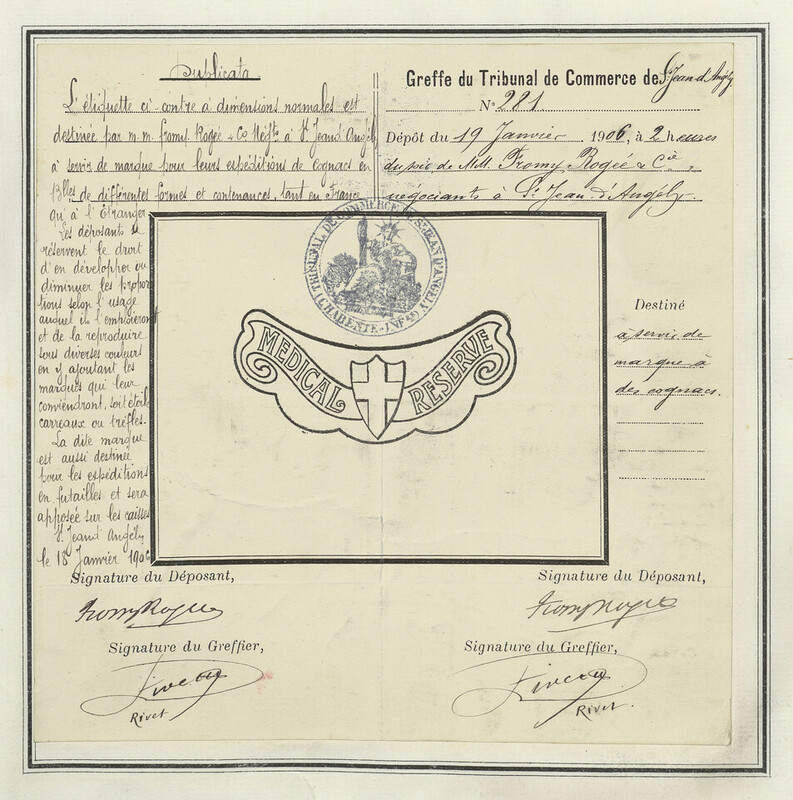 Duplicata
L'étiquette ci-contre a dimensions normales est
destinée par m.m. Fromy Rogée & Co Négts à St Jean d'Angély
à servir de marque pour leurs expéditions de cognacs en
Blles de différentes formes et contenances, tant en France
qu'à l'Etranger
Les déposants se
réservent le droit
d'en développer ou
diminuer les propor
tions selon l'usage
auquel ils l'emploieront
et de la reproduire
sous diverses couleurs
en y ajoutant les
marques qui leur
conviendront, soit étoiles
carreaux ou trèfles.
La dite marque
est aussi destinée
pour les expéditions
en futailles et sera
apposée sur les caisses
St Jean d'Angély
le 18 Janvier 1906
Greffe du Tribunal de Commerce de St Jean d'Angély
No 281
Dépôt du 19 Janvier 1906, à 2 heures
de MM. Fromy Rogée & Cie,
négociants à St Jean d'Angély.
TRIBUNAL DE COMMERCE DE ST JEAN D'ANGELY
(CHARENTE-INFRE)
MEDICAL RESERVE
Destiné
à servir de
marque à
des cognacs.
Signature du Déposant,
Fromy Rogée
Signature du Greffier,
Rivet
Signature du Déposant,
Fromy Rogée
Signature du Greffier,
Rivet.